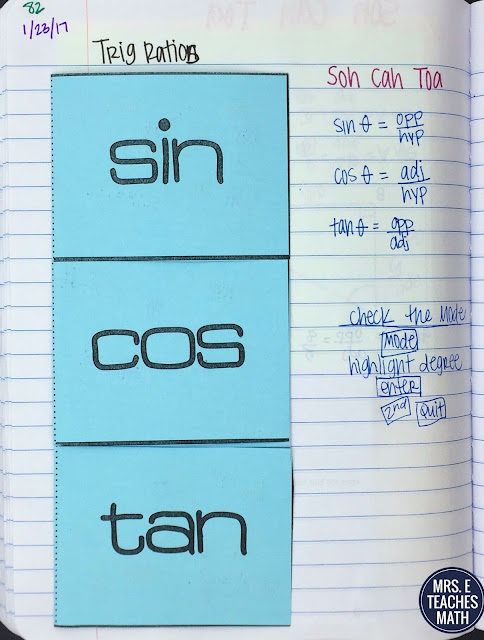 82
1/23/17
Trig Ratios
sin
cos
tan
Soh Cah Toa
sin θ = opp/hyp
cos θ = adj/hyp
tan θ = opp/adj
check the Mode
Mode
highlight degree
enter
2nd Quit
MRS. E
TEACHES
MATH